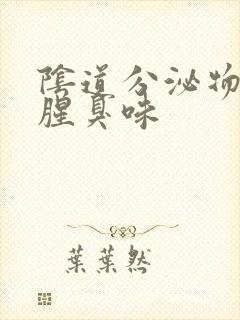 陰道分泌物
腥臭味
葉葉然